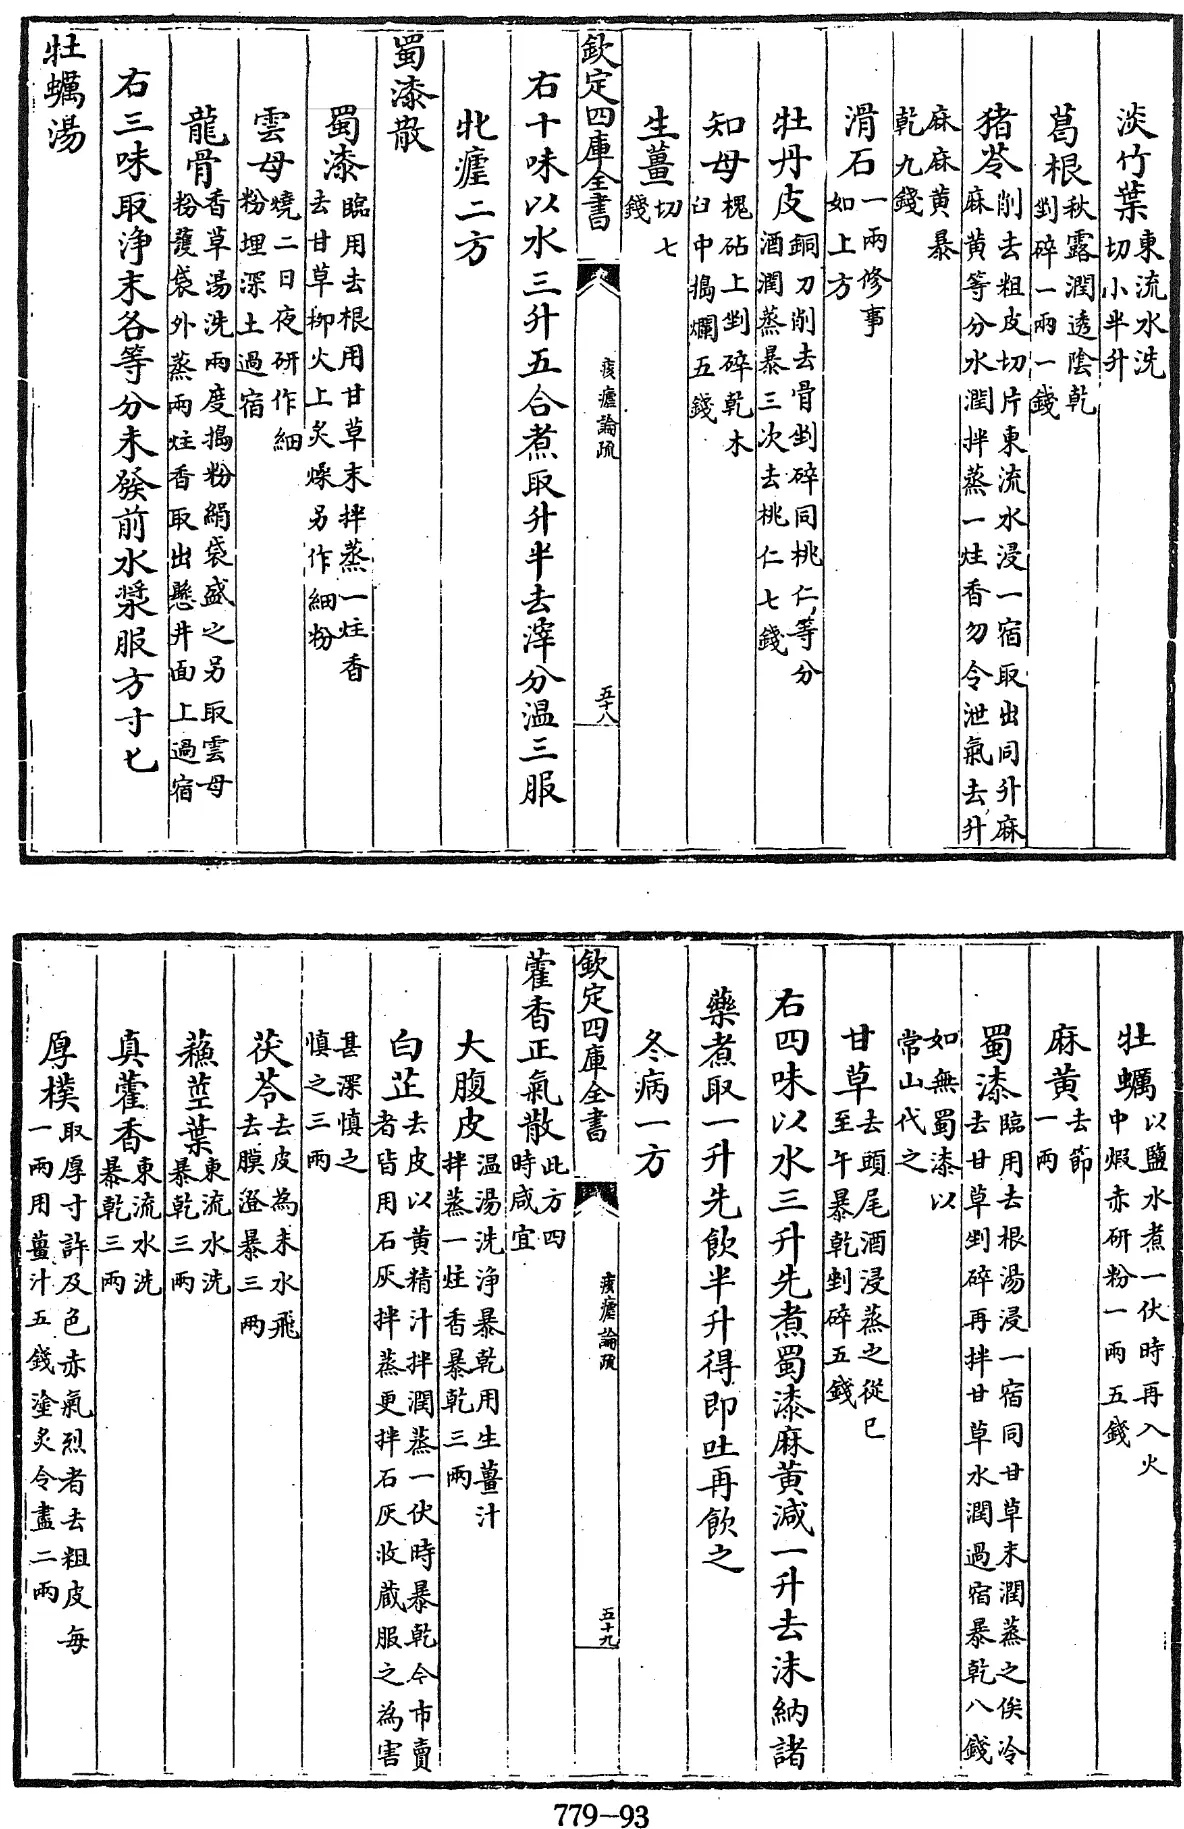 淡竹葉東流水洗切小半升
葛根秋露潤透陰乾剉碎一兩一錢
猪苓削去粗皮切片東流水浸一宿取出同升麻麻黄等分水潤拌蒸一炷香勿令泄氣去升
麻麻黄暴乾九錢
滑石一兩修事如上方
牡丹皮銅刀削去骨剉碎同桃仁等分酒潤蒸暴三次去桃仁七錢
知母槐砧上剉碎乾木臼中搗爛五錢
生薑切七錢
欽定四庫全書
痎瘧論疏
五十八
右十味以水三升五合煮取升半去滓分温三服
牝瘧二方
蜀漆散
蜀漆臨用去根用甘草末拌蒸一炷香去甘草柳火上炙燥另作細粉
雲母燒二日夜研作細粉埋深土過宿
龍骨香草湯洗兩度搗粉絹袋盛之另取雲母粉護袋外蒸兩炷香取出懸井面上過宿
右三味取浄末各等分未發前水漿服方寸匕
牡蠣湯
牡蠣以鹽水煮一伏時再入火中煆赤研粉一兩五錢
麻黄去節一兩
蜀漆臨用去根湯浸一宿同甘草末潤蒸之俟冷去甘草剉碎再拌甘草水潤過宿暴乾八錢
如無蜀漆以常山代之
甘草去頭尾酒浸蒸之從巳至午暴乾剉碎五錢
右四味以水三升先煮蜀漆麻黄減一升去沫納諸
藥煮取一升先飲半升得即吐再飲之
冬病一方
欽定四庫全書
痎瘧論疏
五十九
藿香正氣散此方四時咸宜
大腹皮温湯洗浄暴乾用生薑汁拌蒸一炷香暴乾三兩
白芷去皮以黄精汁拌潤蒸一伏時暴乾今市賣者皆用石灰拌蒸更拌石灰收蔵服之為害
甚深慎之慎之三兩
茯苓去皮為末水飛去膜澄暴三兩
蘓莖葉東流水洗暴乾三兩
真藿香東流水洗暴乾三兩
厚樸取厚寸許及色赤氣烈者去粗皮每一兩用薑汁五錢塗炙令盡二兩
779-93